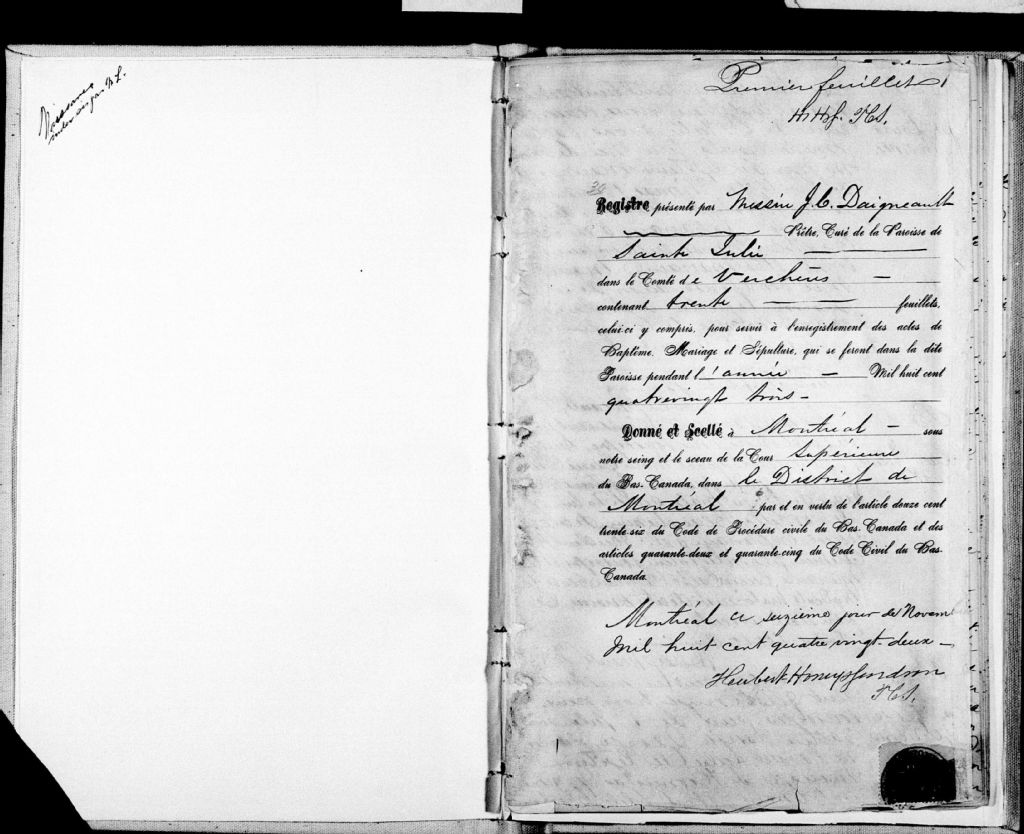 Premier feuillet
Registre présenté par Messire J. C. Daigneault
Prêtre, Curé de la Paroisse de
Sainte Julie
dans le Comté de Verchères
contenant trente feuillets,
celui-ci y compris, pour servir à l'enregistrement des actes de
Baptême, Mariage et Sépulture, qui se feront dans la dite
Paroisse pendant l'année Mil huit cent
quatrevingt trois -
Donné et Scellé à Montréal - sous
notre seing et le sceau de la Cour Supérieure
du Bas-Canada, dans le District de
Montréal par et en vertu de l'article douze cent
trente-six du Code de Procédure civile du Bas-Canada et des
articles quarante-deux et quarante-cinq du Code Civil du Bas-
Canada.
Montréal ce seizième jour de Novem
Mil huit cent quatre vingt-deux -